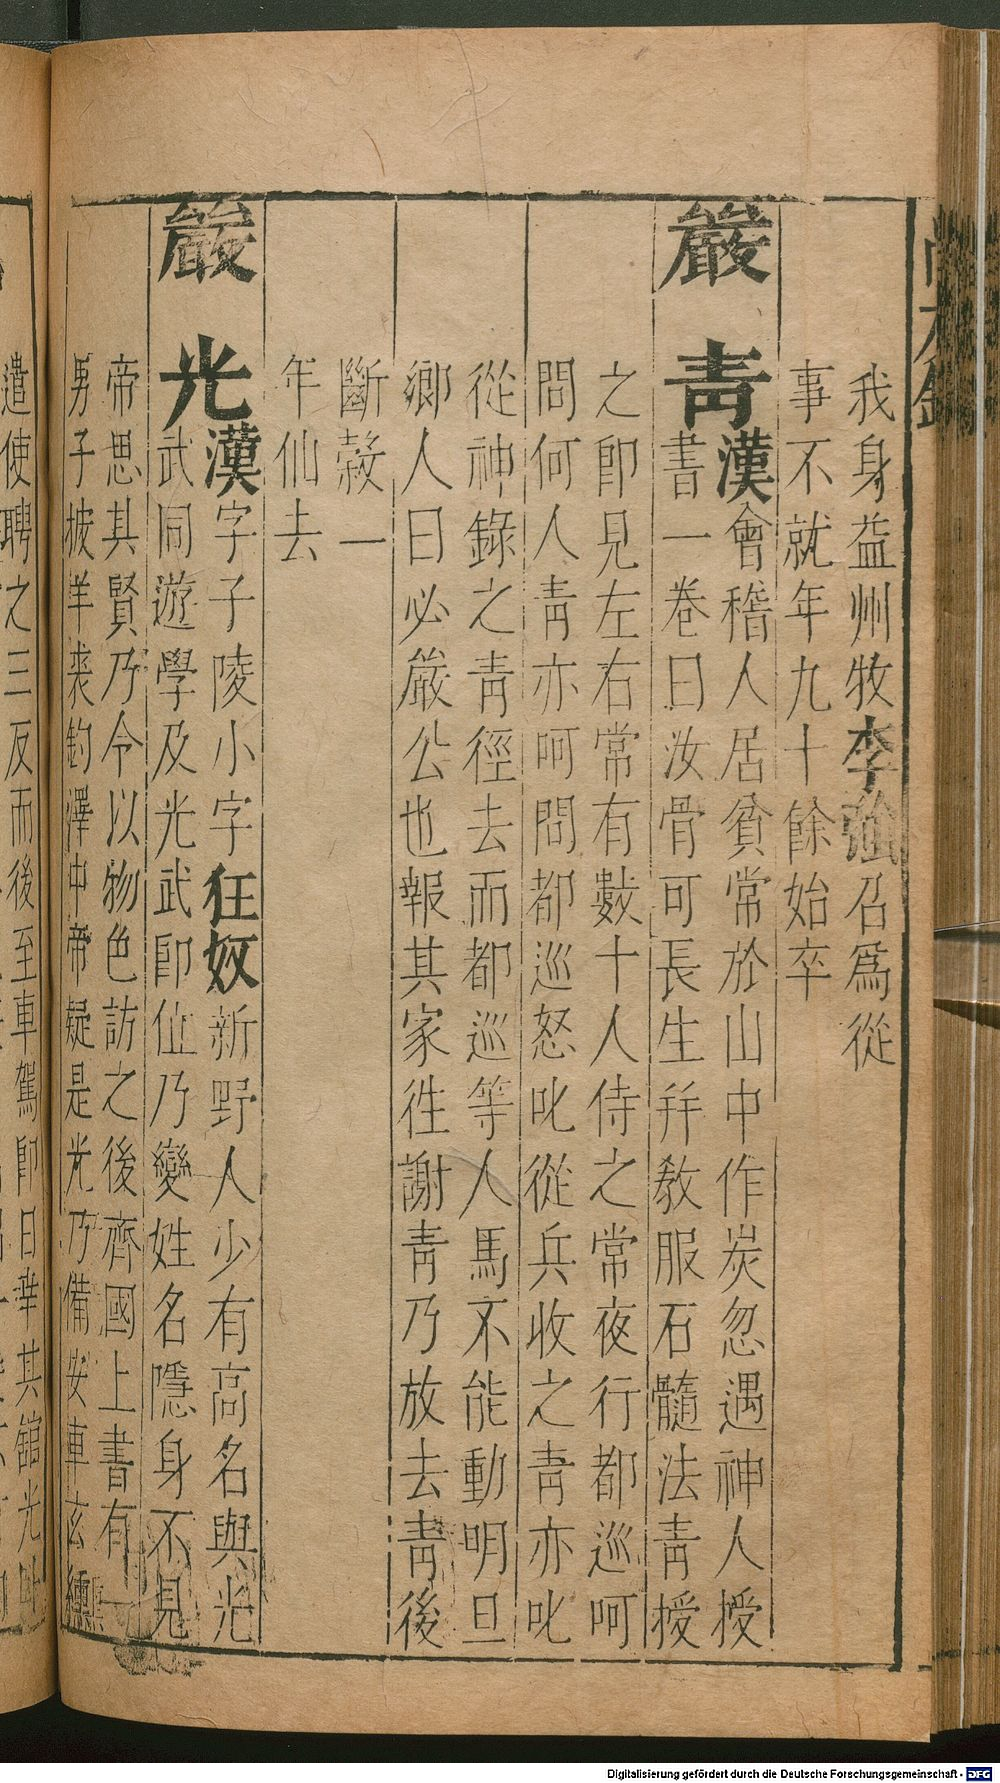 我身益州牧李強召為從
事不就年九十餘始卒
嚴青漢會稽人居貧常於山中作炭忽遇神人授
書一卷曰汝骨可長生并教服石髓法青授
之即見左右常有數十人侍之常夜行都巡呵
問何人青亦呵問都巡怒叱從兵收之青亦叱
從神錄之青徑去而都巡等人馬不能動明旦
鄉人曰必嚴公也報其家往謝青乃放去青後
斷穀一
年仙去
嚴光漢字子陵小字狂奴新野人少有高名與光
武同遊學及光武即位乃變姓名隱身不見
帝思其賢乃令以物色訪之後齊國上書有一
男子披羊裘釣澤中帝疑是光乃備安車玄纁
遣使聘之三反而後至車駕即日幸其館光臥
Digitalisierung gefördert durch die Deutsche Forschungsgemeinschaft - DFG